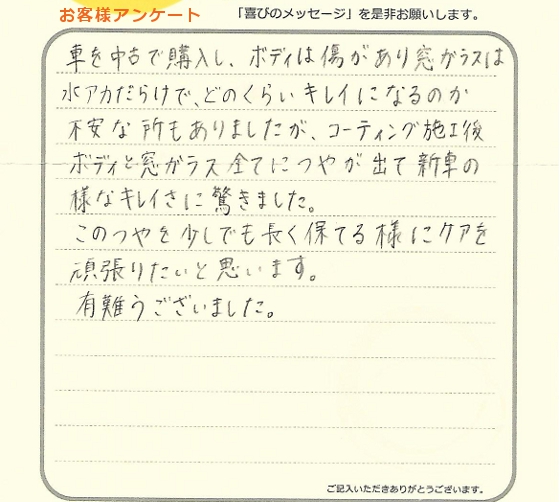 お客様アンケート 「喜びのメッセージ」を是非お願いします。
車を中古で購入し、ボディは傷があり窓ガラスは
水アカだらけで、どのくらいキレイになるのか
不安な所もありましたが、コーティング施工後
ボディと窓ガラス全てにつやが出て新車の
様なキレイさに驚きました。
このつやを少しでも長く保てる様にケアを
頑張りたいと思います。
有難うございました。
ご記入いただきありがとうございます。